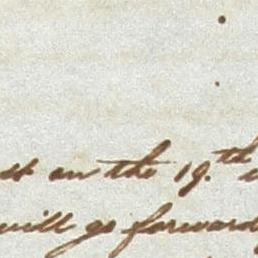 on the 19.th
will go forward